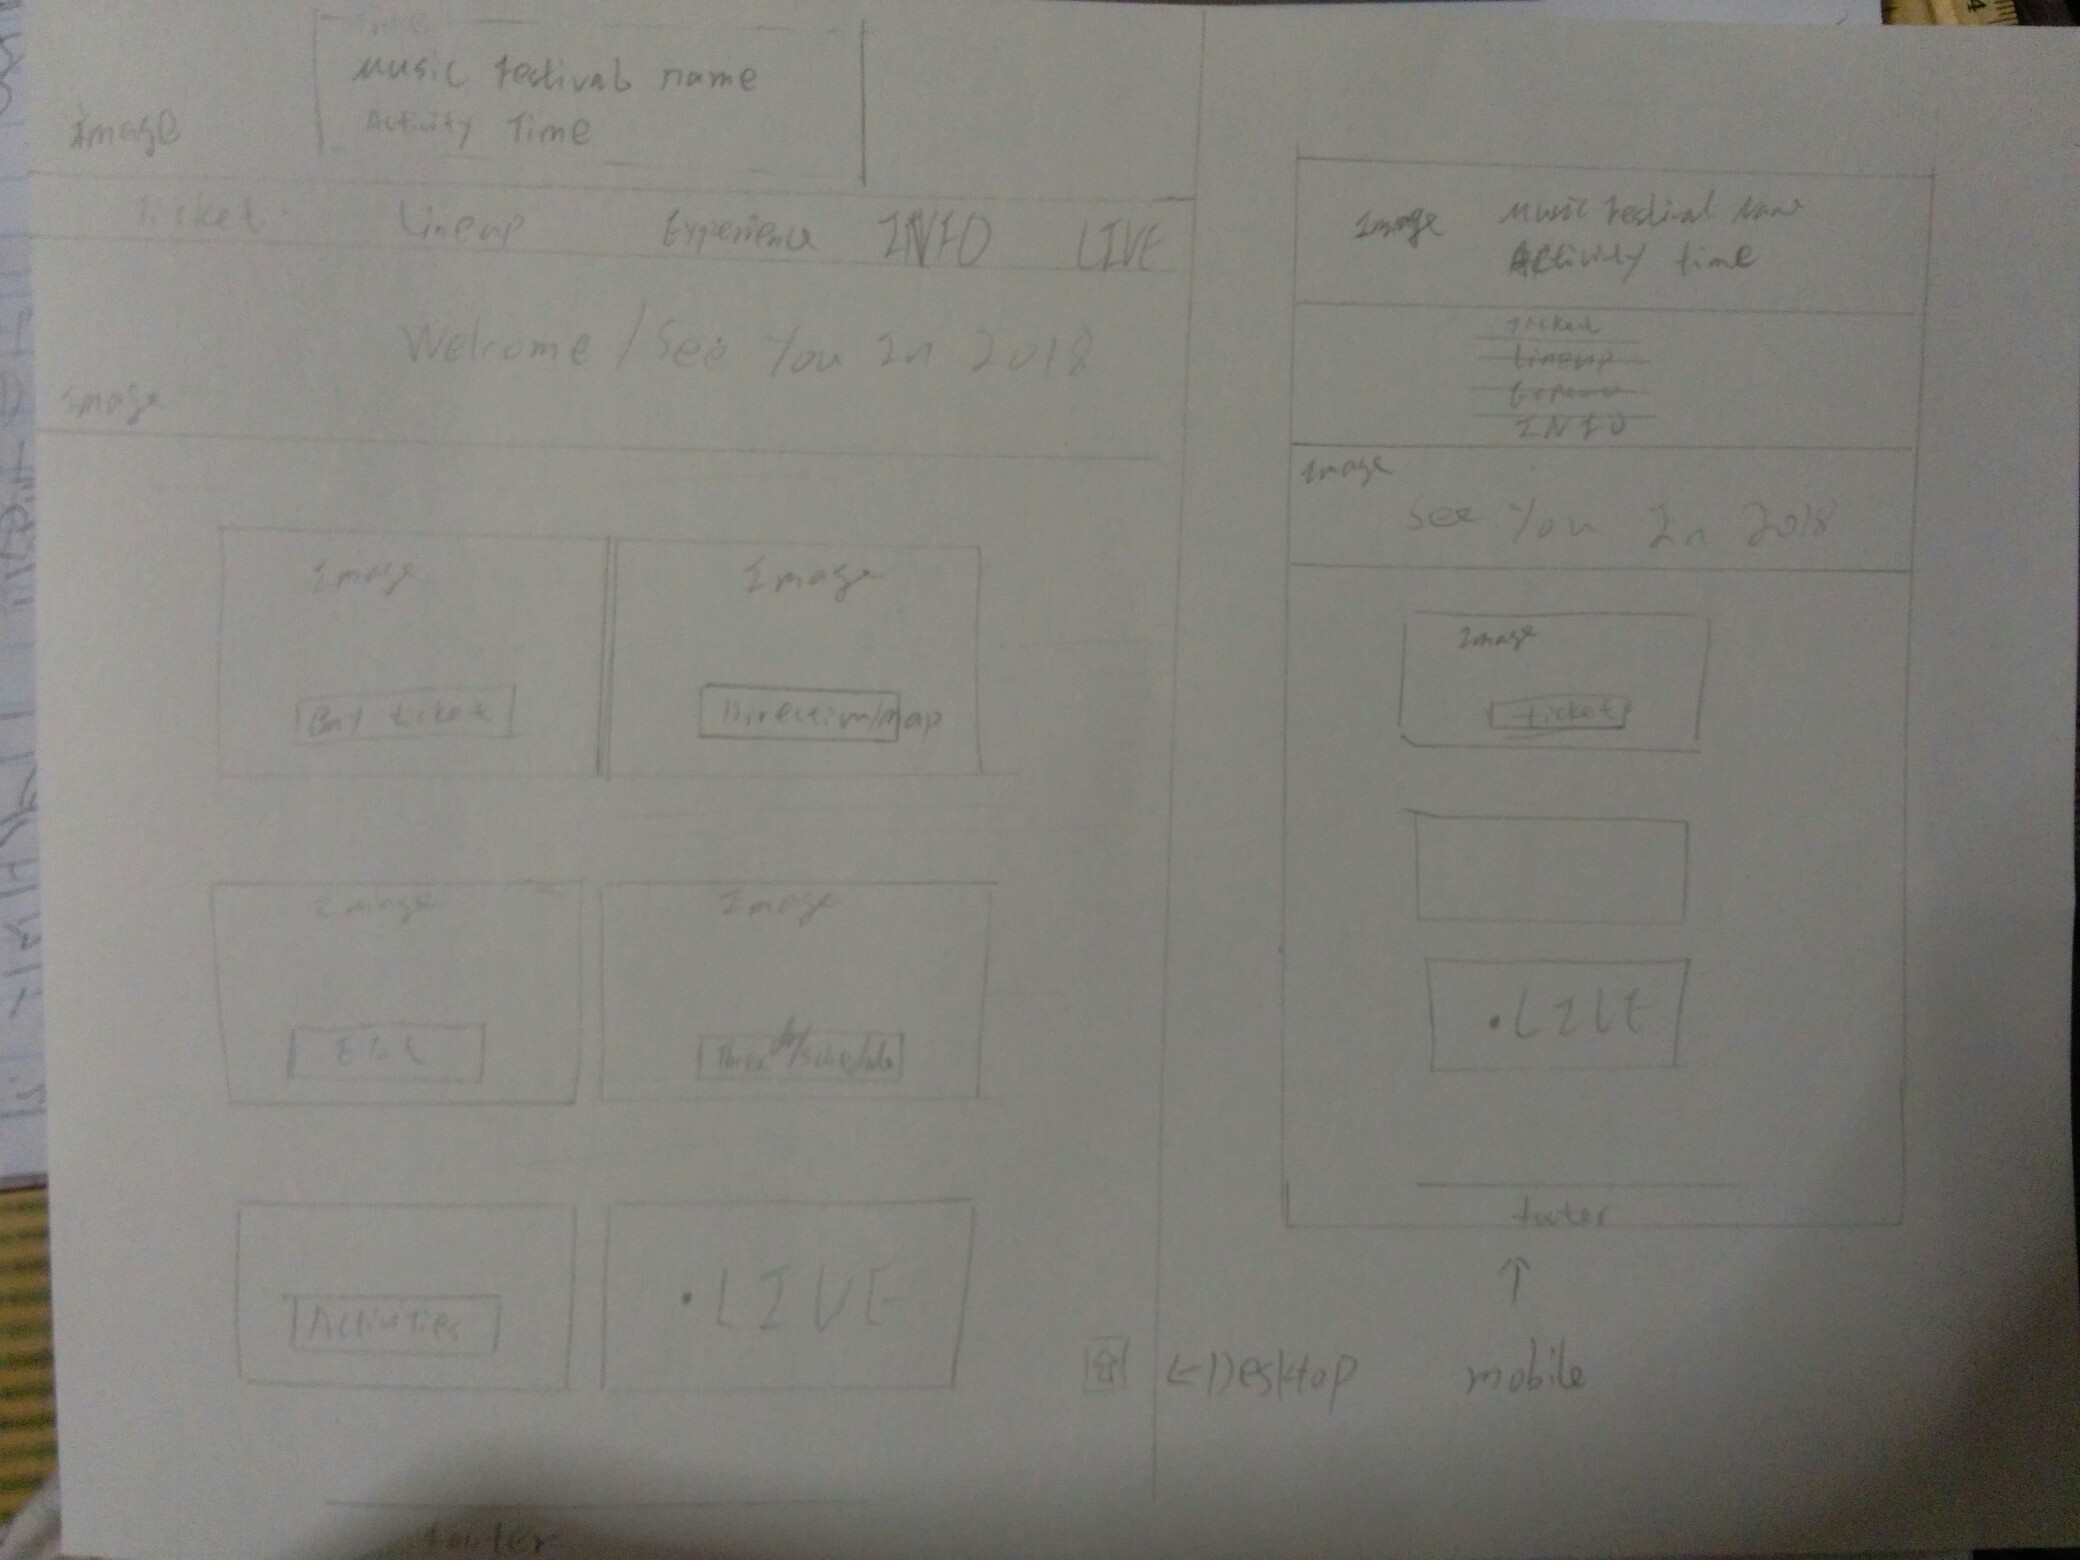 Music festival name
Activity Time
Image
Ticket Lineup Experience INFO LIVE
Welcome / See You In 2018
Image
Image Image
Buy ticket Direction/map
Image Image
Three day/schedule
Activities
• LIVE
footer
← Desktop
Image
Music festival Name
Activity time
Ticket
Lineup
INFO
Image
See You In 2018
Image
ticket
• LIVE
footer
↑
mobile